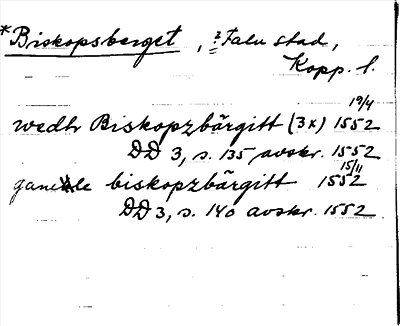 *Biskopsberget, ? Falu stad,
Kopp. l.
19/4
wedh Biskopzbärgitt (3x) 1552
DD 3, s. 135 avskr. 1552
15/11
biskopzbärgitt 1552
DD 3, s. 140 avskr. 1552